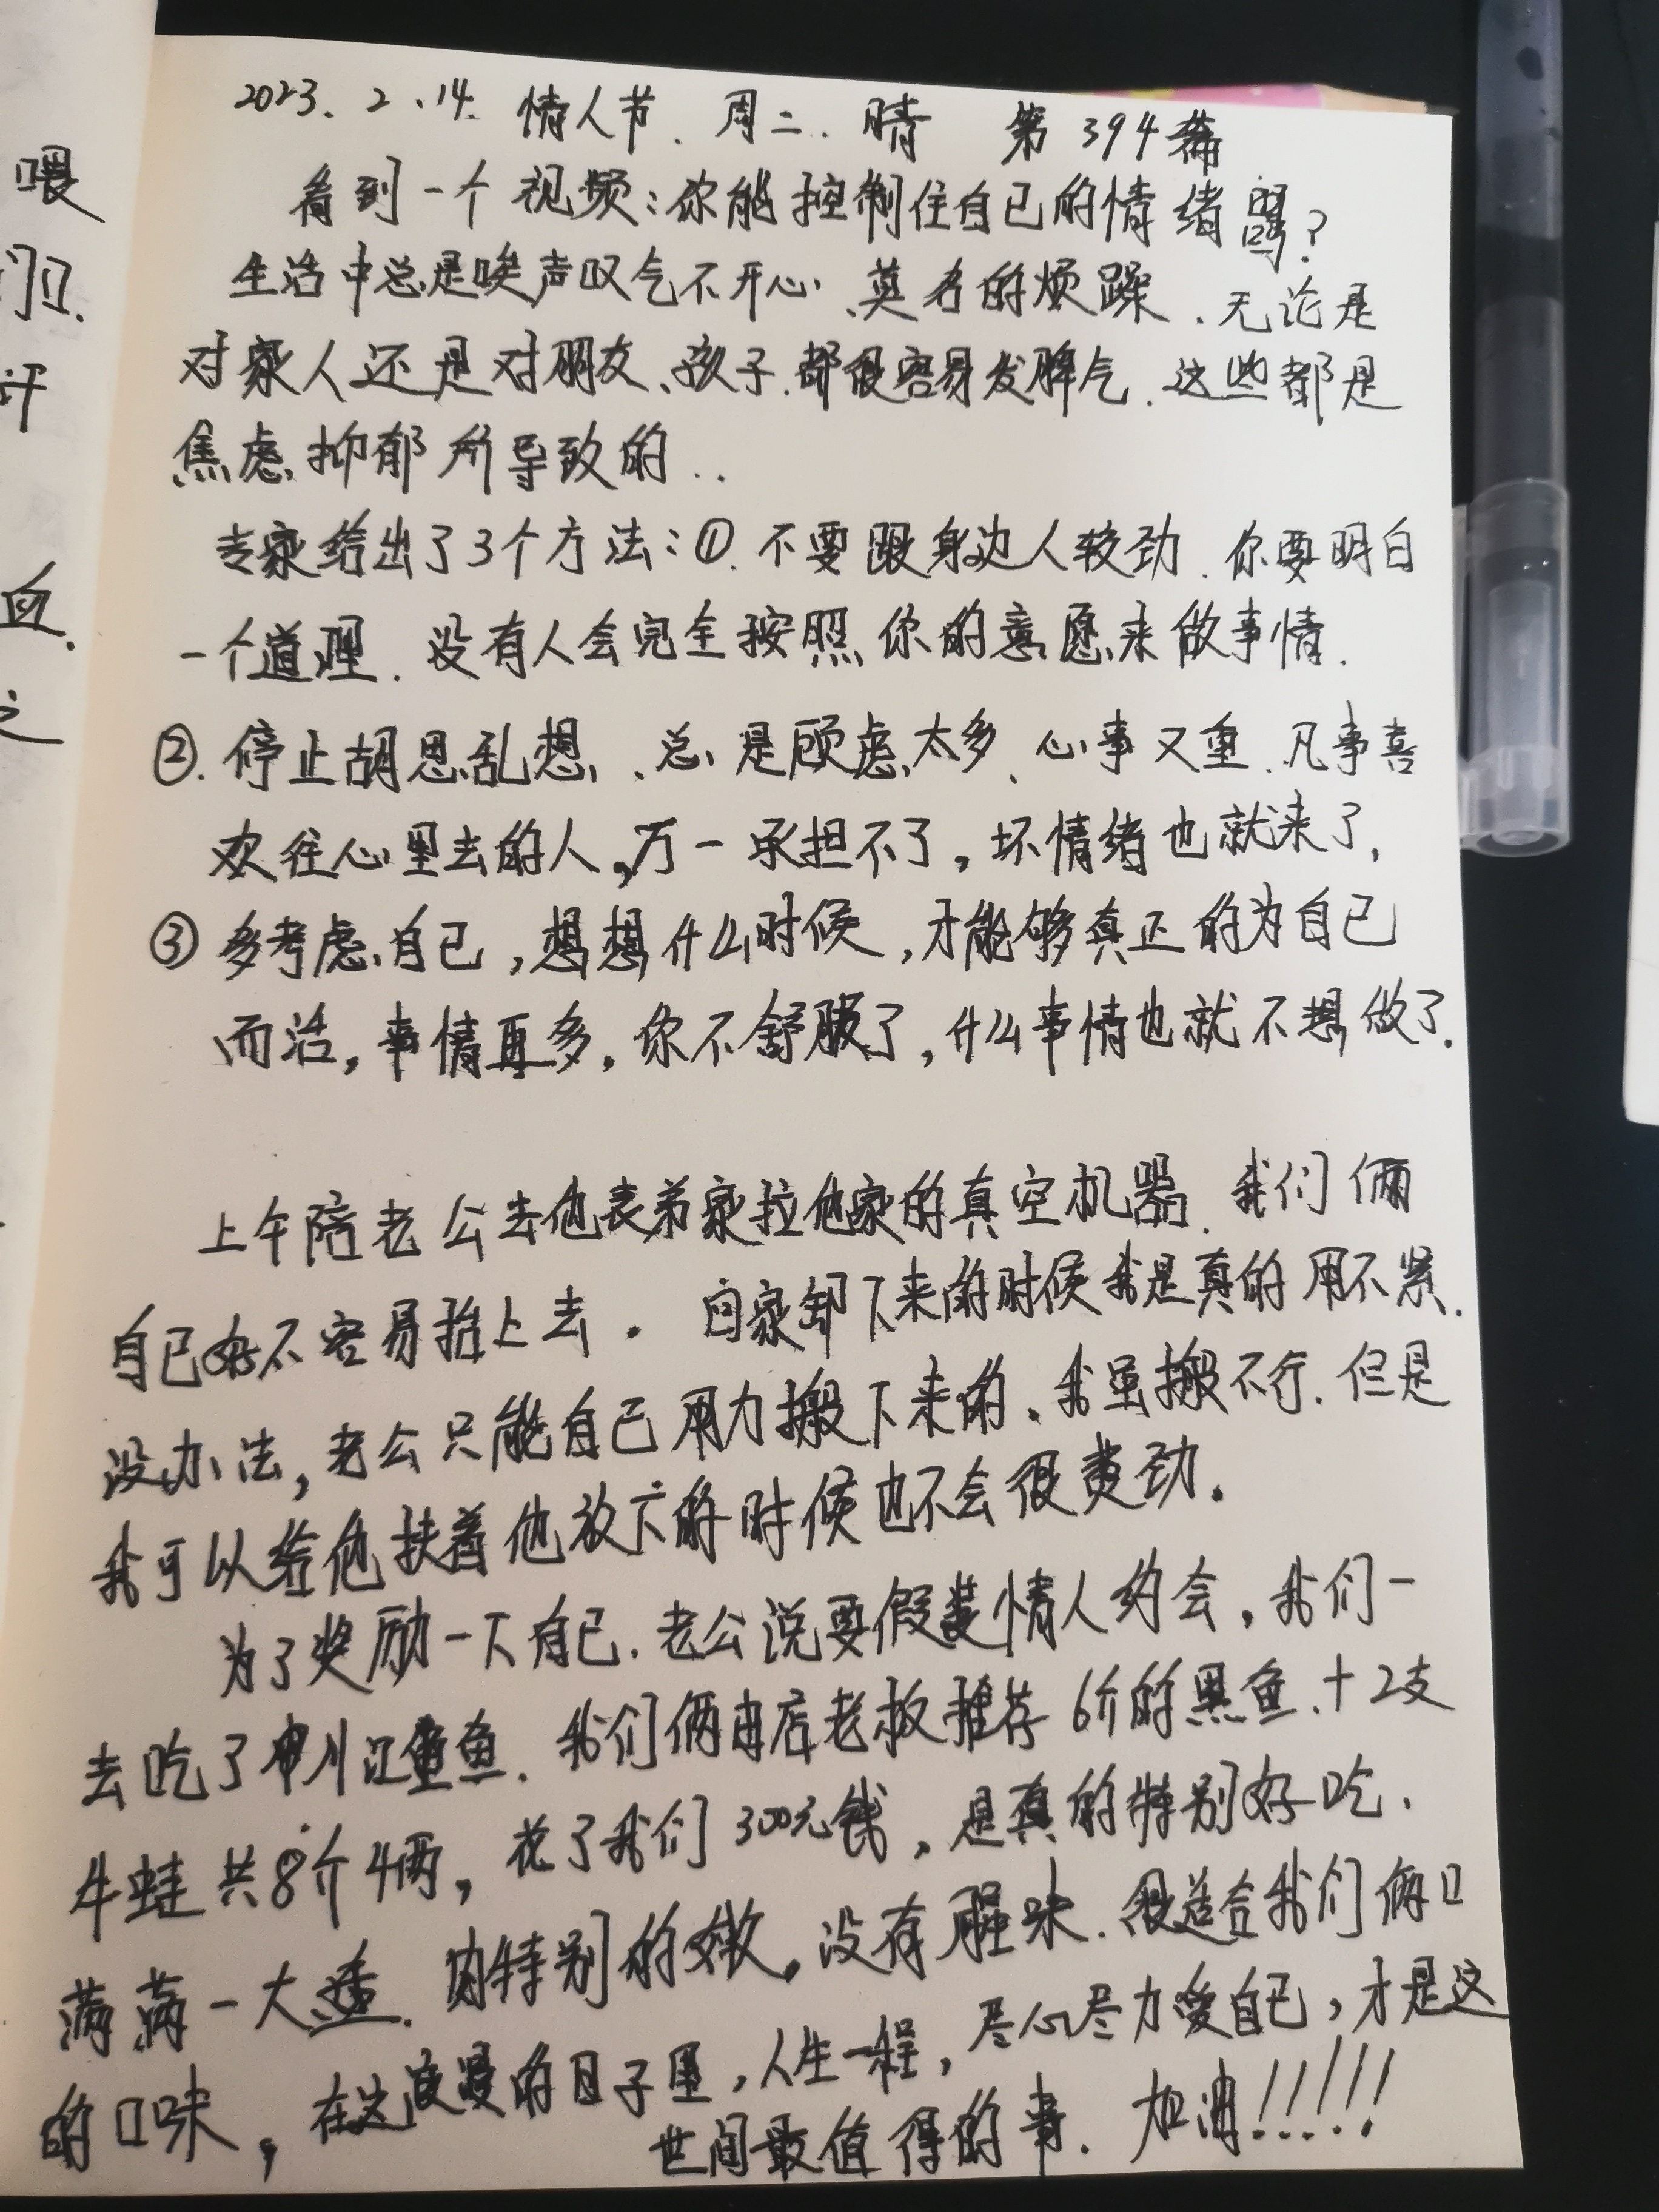 喂
门口.
血.
2023. 2 .14. 情人节. 周二. 晴 第394篇
看到一个视频:你能控制住自己的情绪吗?
生活中总是唉声叹气不开心、莫名的烦躁. 无论是
对家人还是对朋友、孩子.都很容易发脾气. 这些都是
焦虑抑郁所导致的..
专家给出了3个方法:①.不要跟身边人较劲. 你要明白
一个道理. 没有人会完全按照你的意愿来做事情.
②.停止胡思乱想、总是顾虑太多、心事又重.凡事喜
欢往心里去的人,万一承担不了,坏情绪也就来了,
③多考虑自己,想想什么时候,才能够真正的为自己
而活,事情再多,你不舒服了,什么事情也就不想做了.
上午陪老公去他表弟家拉他家的真空机器. 我们俩
自己好不容易抬上去. 自家卸下来的时候我是真的用不紧.
没办法,老公只能自己用力搬下来的.我虽搬不行.但是
我可以给他扶着他放下的时候也不会很费劲.
为了奖励一下自己.老公说要假装情人约会,我们一
去吃了 江 鱼. 我们俩由店老板推荐6斤的黑鱼.+2支
牛蛙共8斤4两,花了我们300元钱,是真的特别好吃.
满满一大 . 肉特别的嫩,没有腥味.很适合我们俩口
的口味,在这浪漫的日子里,人生一程,尽心尽力爱自己,才是这
世间最值得的事. 加油!!!!!!